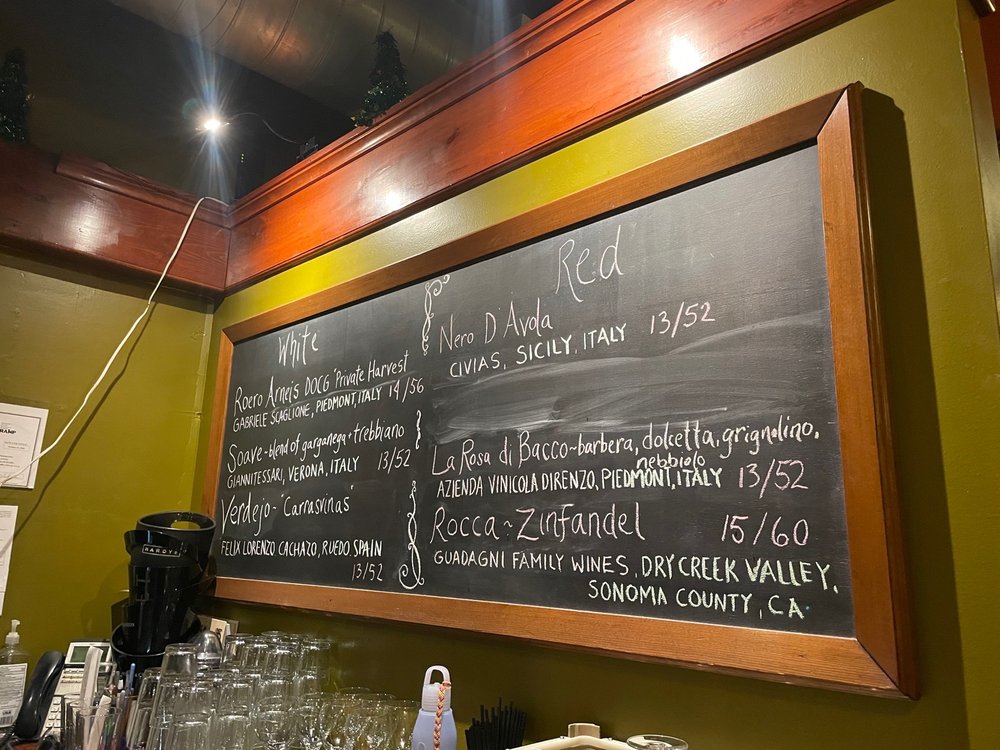 White
Roero Arneis DOCG "Private Harvest
GABRIELE SCAGLIONE, PIEDMONT, ITALY 14/56
Soave-blend of garganega+trebbiano
GIANNITESSARI, VERONA, ITALY 13/52
Verdejo-"Carrasvinas"
FELIX LORENZO CACHAZO, RUEDO. SPAIN
13/52
Red
Nero D Avola
CIVIAS, SICILY, ITALY 13/52
La Rosa di Bacco~barbera, dolcetta, grignolino,
nebbiolo
AZIENDA VINICOLA DIRENZO, PIEDMONT, ITALY 13/52
Rocca~Zinfandel 15/60
GUADAGNI FAMILY WINES, DRY CREEK VALLEY,
SONOMA COUNTY, CA